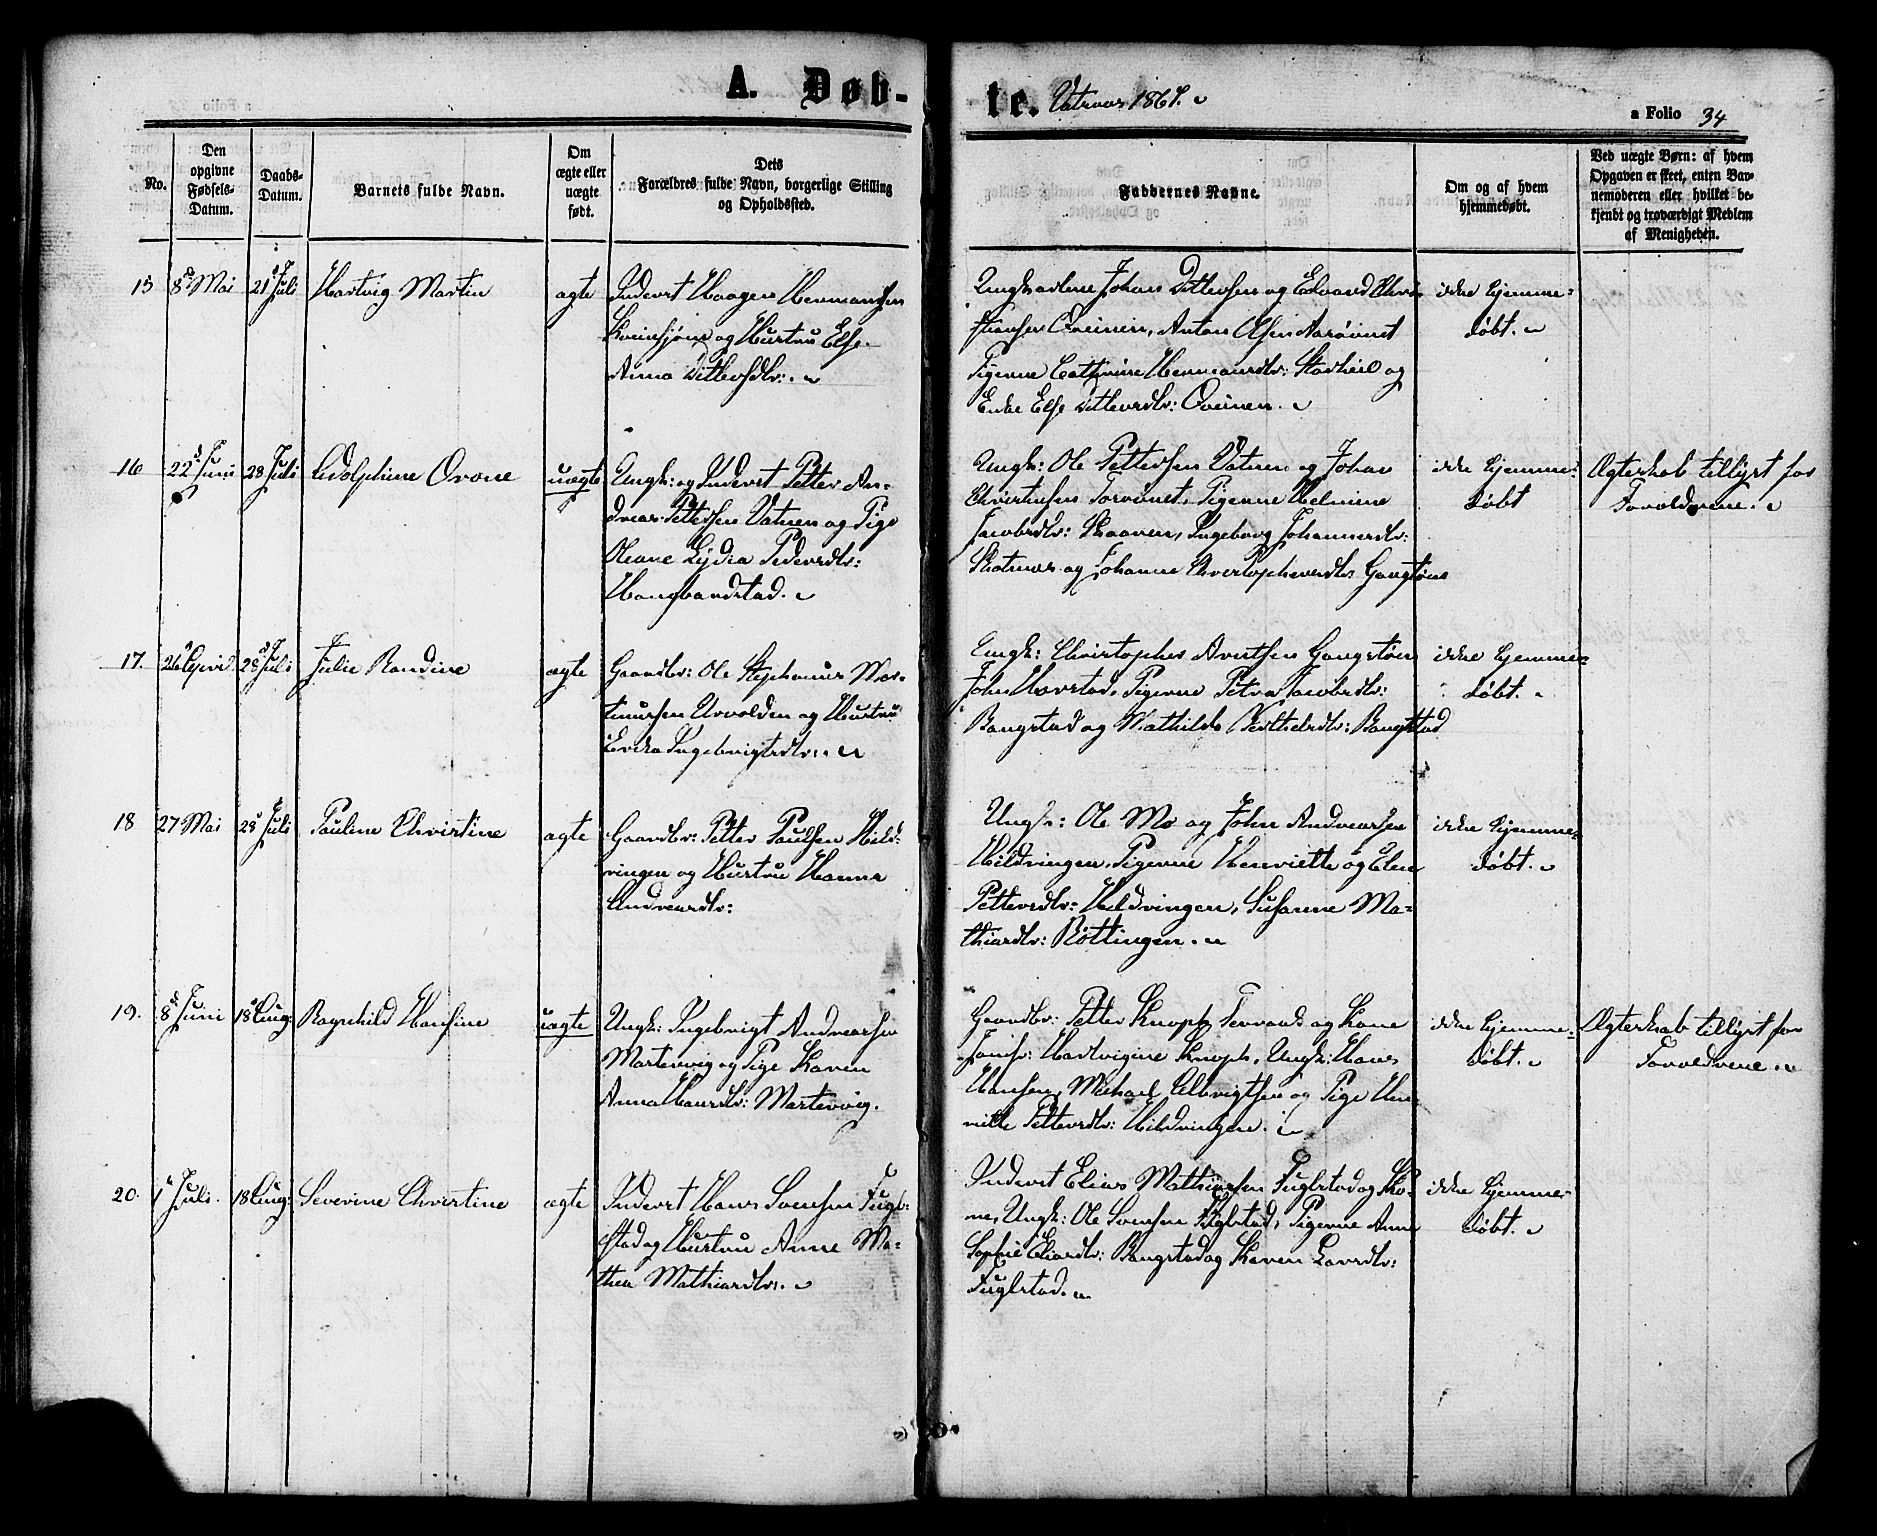 A. Døb-
te. Vatnaas 1867.
a Folio 34
No.
Den
opgivne
Fødsels-
Datum.
Daabs-
Datum.
Barnets fulde Navn.
Om
ægte eller
uægte
født.
Dets
Forældres fulde Navn, borgerlige Stilling
og Opholdssted.
Faddernes Navne.
Om og af hvem
hjemmedøbt.
Ved uægte Børn: af hvem
Opgaven er skeet, enten Bar-
nemoderen eller hvilket be-
kjendt og troværdigt Medlem
af Menigheden.
15 8de Mai 21 Juli Hartvig Martin ægte
Inderst Haagen Hermansen
og Hustru Else
Anna Ditlevsdtr:
Ungkarlene Johan Ditlevsen og Edvard Chri-
stiansen Qveinen, Anton Olsen
Pigerne Cathrine Hermansdtr: Storheil og
Enke Else Ditlevsdtr: Qveinen.
ikke hjemme-
døbt.
16 22 Juni 28 Juli Adolphine Orone uægte
Ungk: og Inderst Petter An-
dreas Pettersen Vatnen og Pige
Oleane Lydia Pedersdtr:
Ungk: Ole Pettersen Vatnen og Johan
Christensen Torvønet, Pigerne Helmine
Jacobsdtr: Skaaren, Ingeborg Johannesdtr:
og Johanne Christophersdtr: Gangstøen
ikke hjemme-
døbt
Ægteskab tillyst for
Forældrene.
17. 26 April 28 Juli Julie Randine ægte
Gaardbr: Ole Stephanus Mor-
tinussen Urvolden og Hustru
Ingebrigtsdtr:
Ungk: Christopher Evertsen Gangstøen
John Hovstad, Pigerne Petra Jacobsdtr:
Bangstad og Mathilde Berthelsdtr: Bangstad
ikke hjemme-
døbt.
18 27 Mai 28 Juli Pauline Christine ægte
Gaardbr: Petter Paulsen Hild-
ringen og Hustru Hanna
Andreasdtr:
Ungk: Ole Mo og John Andreasen
Hildringen, Pigerne Henriette og Elen
Pettersdtr: Hildringen, Susanne Ma-
thiasdtr: Røttingen.
ikke hjemme-
døbt.
19. 8de Juni 18 Aug: Ragnhild Hansine uægte
Ungk: Ingebrigt Andreasen
Martervig og Pige Karen
Anna Hansdtr: Martervig.
Gaardbr: Petter Knoph Terraak og Kone
Hartvigine Knoph, Ungk: Hans
Hansen, Michael Elbrigtsen og Pige Hen-
riette Pettersdtr: Hildringen.
ikke hjemme-
døbt.
Ægteskab tillyst for
Forældrene.
20. 1 Juli. 18 Aug: Severine Christine ægte
Inderst Hans Svensen Fugl-
stad og Hustru Anne Ma-
thea Mathiasdtr:
Inderst Elias Mathiassen Fuglstad og Ko-
ne, Ungk: Ole Svensen Fuglstad, Pigerne Anne
Sophie Eliasdtr: Bangstad og Karen Larsdtr:
Fuglstad.
ikke hjemme-
døbt.